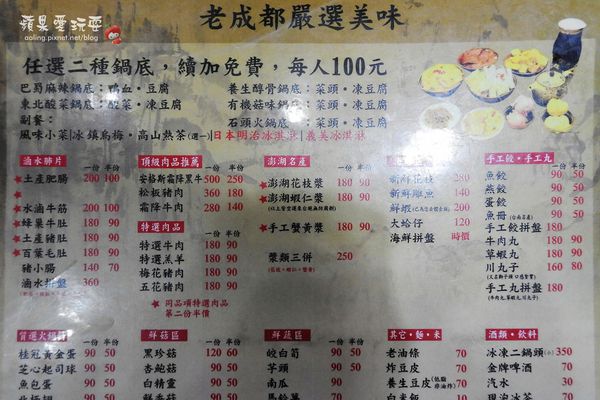 蘋果愛玩耍
aaling.pixnet.net/blog
老成都嚴選美味
任選二種鍋底，續加免費，每人100元
巴蜀麻辣鍋底：鴨血‧豆腐
東北酸菜鍋底：酸菜‧凍豆腐
副餐：
風味小菜|冰鎮烏梅‧高山熱茶(選一)|日本明治冰淇淋|義美冰淇淋
養生醇骨鍋底：菜頭‧凍豆腐
有機菇味鍋底：菜頭‧凍豆腐
石頭火鍋底：菜頭‧凍豆腐
滷水肺片
一份 半份
★土產肥腸 200 100
★水滷牛筋 200 100
★蜂巢牛肚 180 90
★土產豬肚 180 90
★百葉毛肚 180 90
豬小腸 140 70
滷水拼盤 360
頂級肉品推薦
一份 半份
安格斯霜降黑牛 500 250
松板豬肉 360 180
霜降牛肉 280 140
特選肉品
一份 半份
特選牛肉 180 90
特選羔羊 180 90
梅花豬肉 180 90
五花豬肉 180 90
★同品項特選肉品
第二份半價
澎湖名產
一份 半份
★澎湖花枝漿 180 90
★澎湖蝦仁漿 180 90
★手工蟹黃漿 180 90
漿類三併 250
一份 半份
新鮮花枝 280
新鮮雕魚 140
鮮蝦 280
大蛤仔 120
海鮮拼盤 時價
手工餃‧手工丸
一份 半份
魚餃 90 50
燕餃 90 50
蛋餃 90 50
魚冊(台南名產) 90 50
手工餃拼盤 180 90
牛肉丸 180 90
草蝦丸 180 90
川丸子 160 80
手工丸拼盤 180 90
質選火鍋料
一份 半份
桂冠黃金蛋 90 50
芝心起司球 90 50
魚包蛋 90 50
鮮菇區
一份 半份
黑珍菇 120 60
杏鮑菇 90 50
白精靈 90 50
鮮蔬區
一份 半份
皎白筍 90 50
芋頭 90 50
南瓜 90 50
其它‧麵‧米
老油條 70
炸豆皮 70
養生豆皮 70
白米飯 10
酒類‧飲料
冰凍二鍋頭(小) 350
金牌啤酒 70
汽水 30
現泡冰茶 70